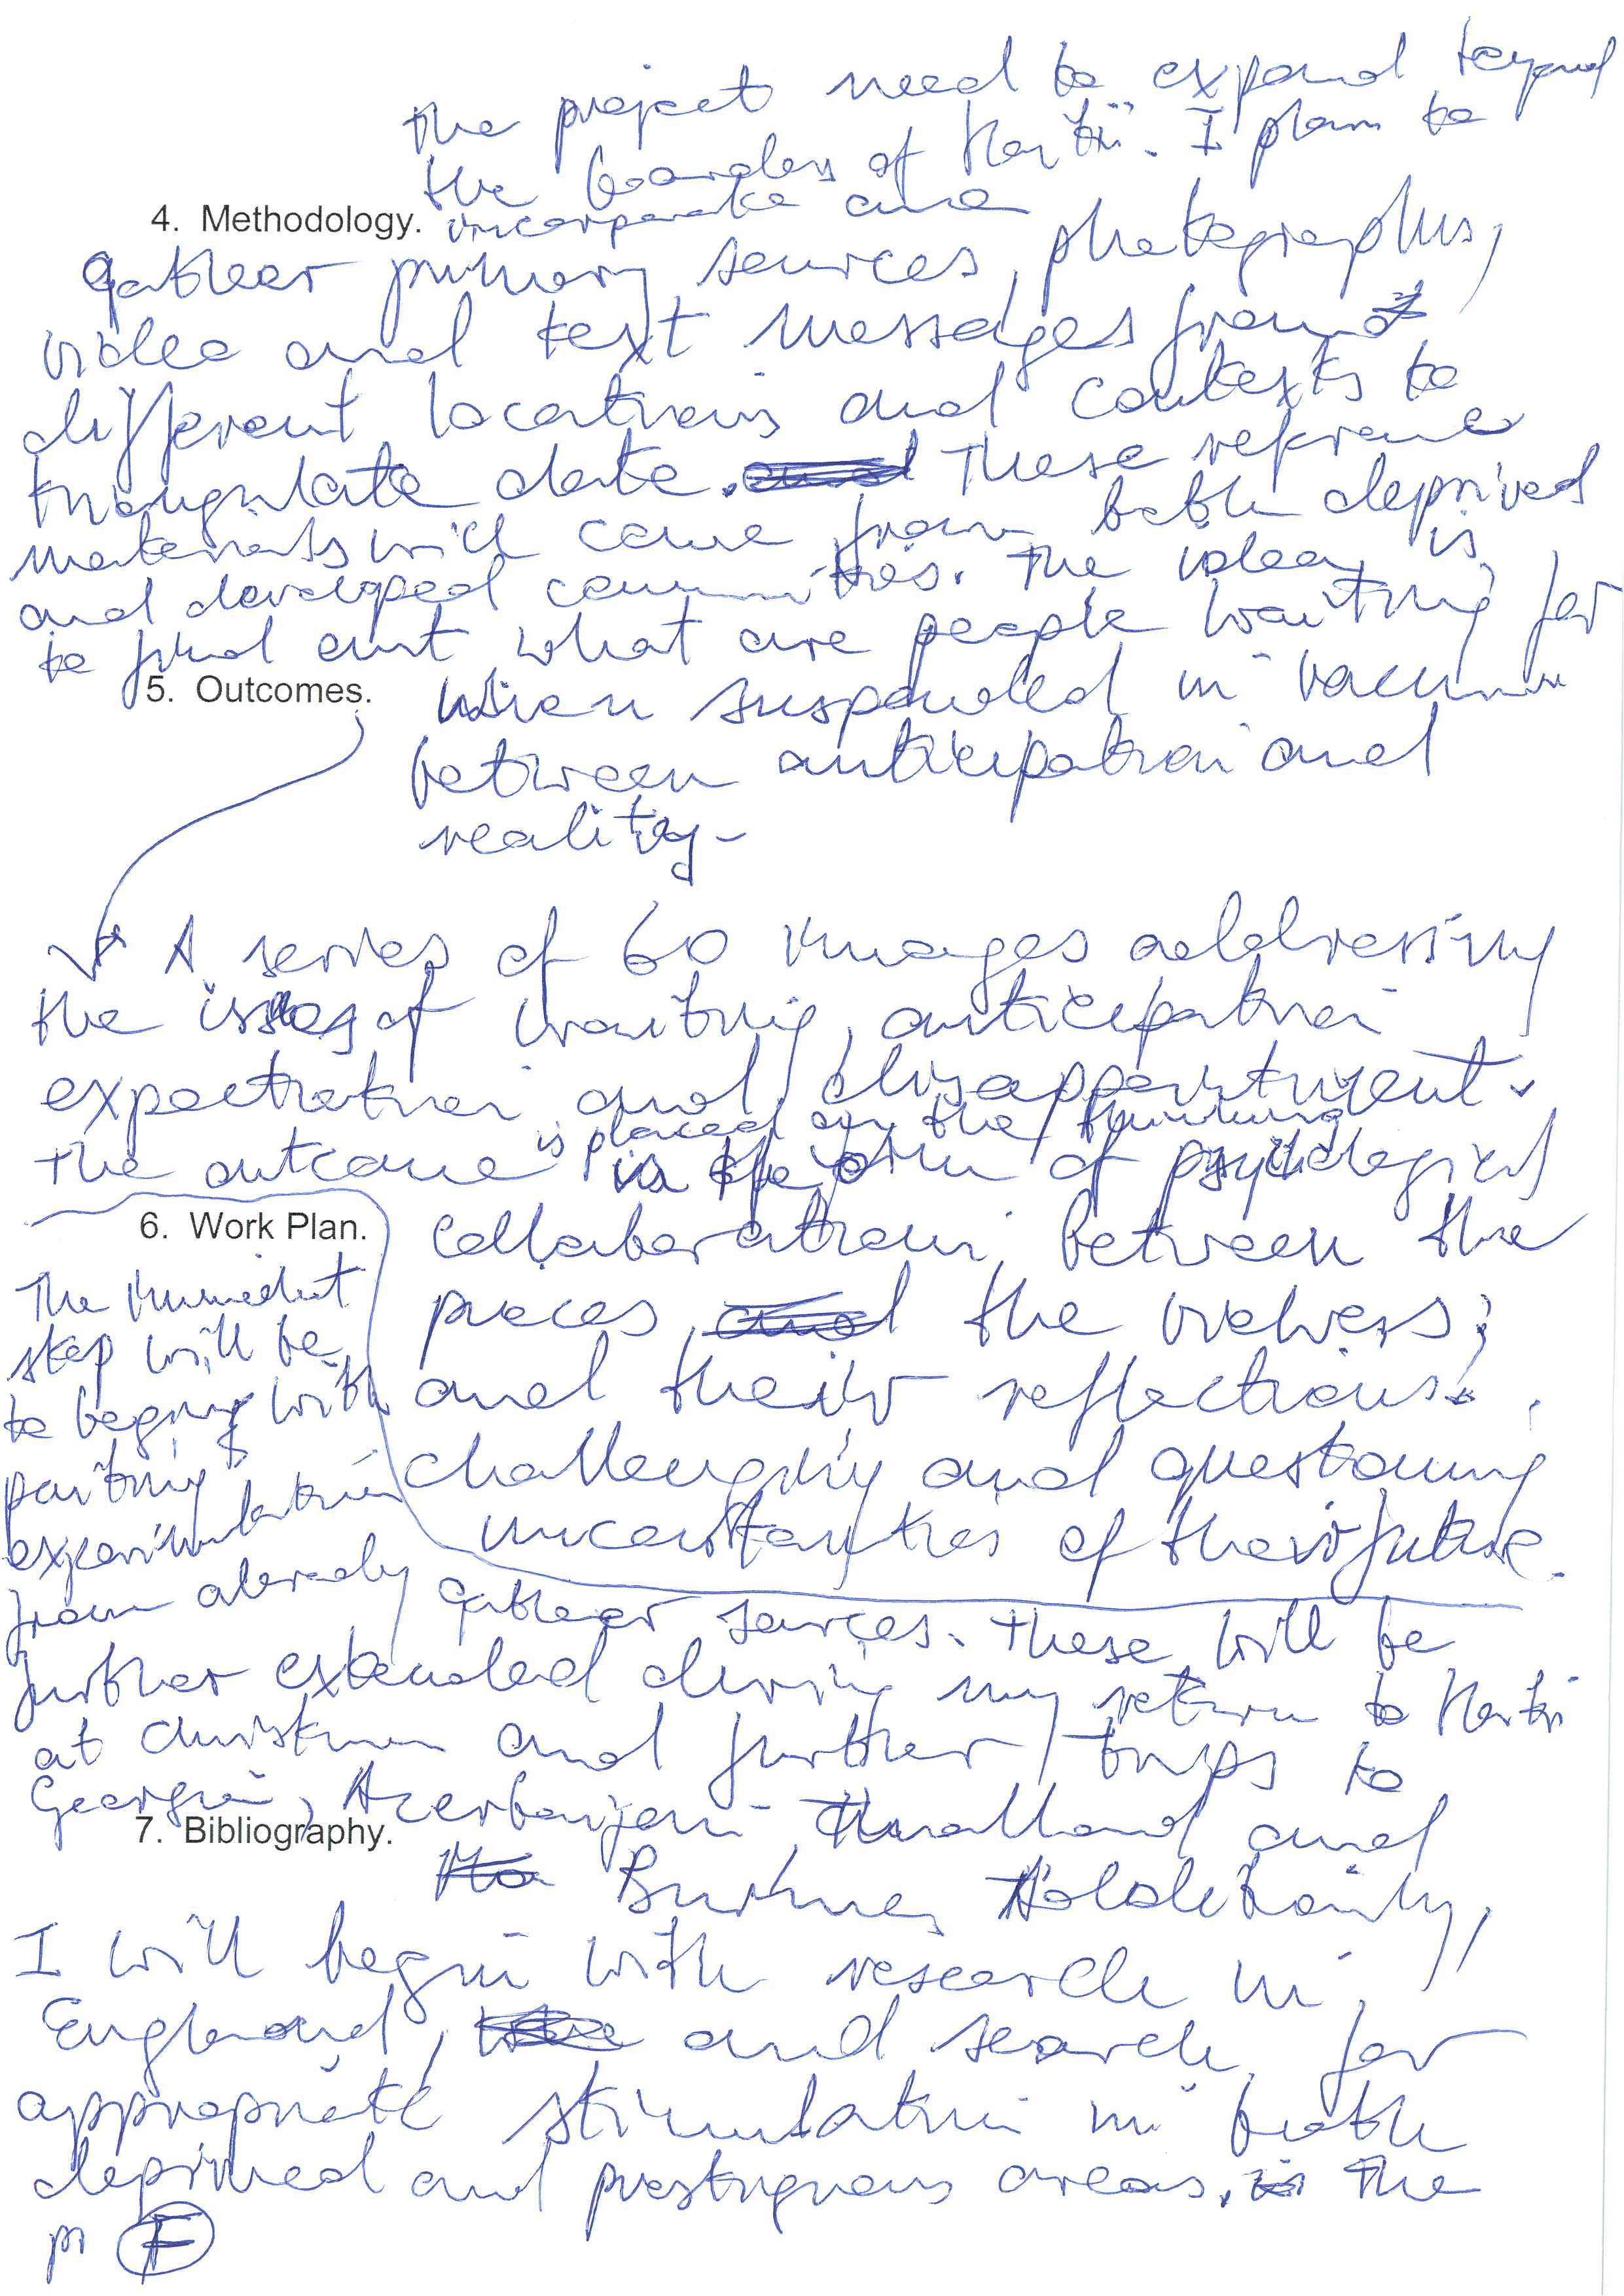 the project need to expand beyond
the boarders of Haiti. I plan to
4. Methodology. incorporate and
gather primary sources, photographs,
video and text messages from
different locations and contexts to
triangulate data. These refrence
materials will come from both deprived
and developed communities. The idea is
to find out what are people waiting for
5. Outcomes. when suspended in vacumm
between anticipation and
reality-
A series of 60 images addressing
the issues of waiting, anticipation
expectation and disappointment.
is placed on the
The outcome is the of psychological
6. Work Plan. collaboration between the
pieces the viewers;
and their reflections.
challenging and questioning
uncertainties of their future.
The immediat
step will be
to begin with
painting
experimentation
from already gather sources. These will be
further extended during my return to Haiti
at Christmas and further trips to
Georgia, Azerbaijan Thailand and
7. Bibliography.
Burma,
I will begin with research in
England, and search for
appropriate stimulation in both
deprived and prestigious areas. The
pr F